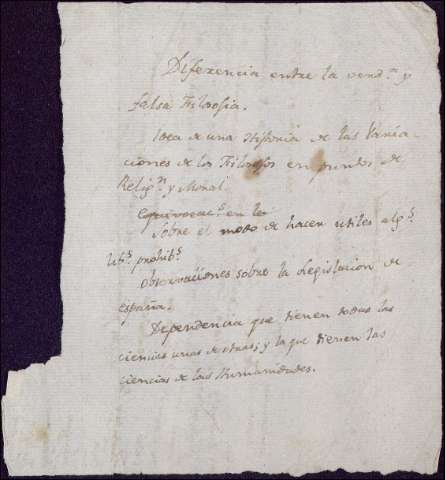 Diferencia entre la verd.ª y
falsa Filosofia.
Idea de una Historia de las Varia
ciones de los Filosofos en puntos de
Relig.n y Moral.
en lo
Sobre el modo de hacer utiles alg.s
lib.s prohib.s
Observaciones sobre la Legislacion de
españa.
Dependencia que tienen todas las
ciencias unas de otras, y la que tienen las
ciencias de las Humanidades.